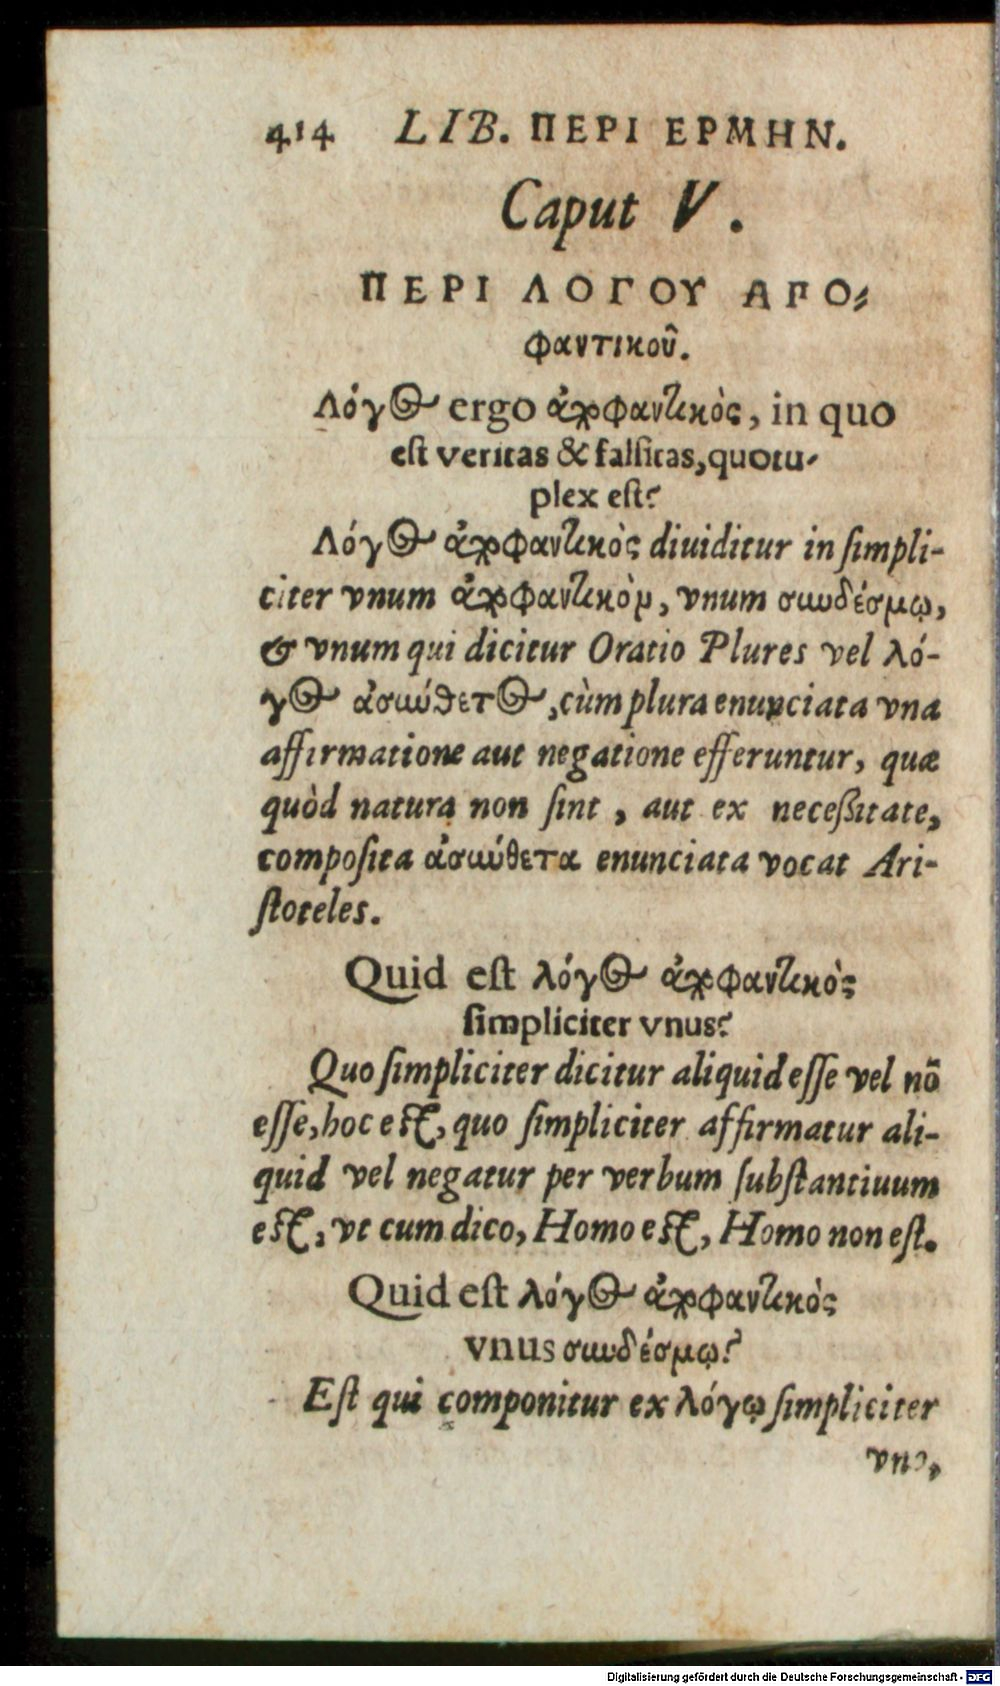 414 LIB. ΠΕΡΙ ΕΡΜΗΝ.
Caput V.
ΠΕΡΙ ΛΟΓΟΥ ΑΠΟ-
φαντικοῦ.
Λόγος ergo ἀποφαντικὸς, in quo
est veritas & falsitas, quotu-
plex est?
Λόγος ἀποφαντικὸς diuiditur in simpli-
citer vnum ἀποφαντικὸν, vnum συνδέσμῳ,
& vnum qui dicitur Oratio Plures vel λό-
γος ἀσύνθετος, cùm plura enunciata vna
affirmatione aut negatione efferuntur, quæ
quòd natura non sint, aut ex necessitate,
composita ἀσύνθετα enunciata vocat Ari-
stoteles.
Quid est λόγος ἀποφαντικὸς
simpliciter vnus?
Quo simpliciter dicitur aliquid esse vel nõ
esse, hoc est, quo simpliciter affirmatur ali-
quid vel negatur per verbum substantiuum
est, vt cum dico, Homo est, Homo non est.
Quid est λόγος ἀποφαντικὸς
vnus συνδέσμῳ?
Est qui componitur ex λόγῳ simpliciter
vno,
Digitalisierung gefördert durch die Deutsche Forschungsgemeinschaft - DFG